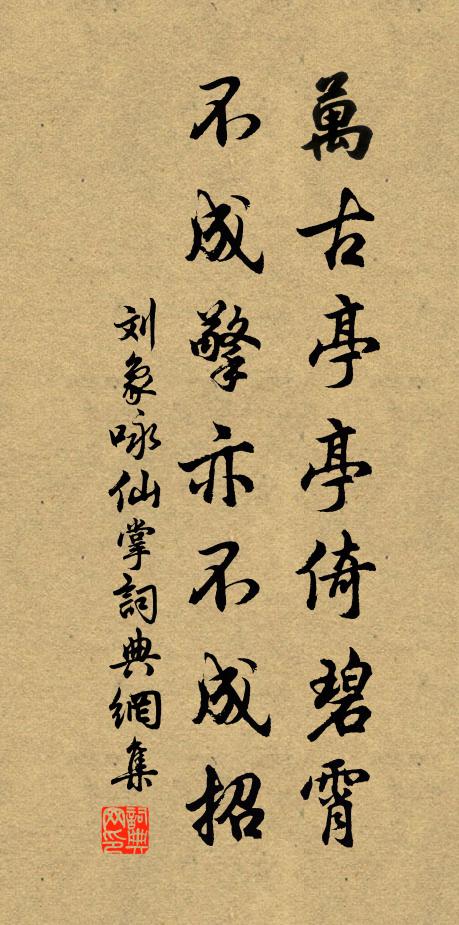 萬古亭亭倚碧霄
不成擎亦不成招
刘象咏仙掌詞典網集
詞典网印